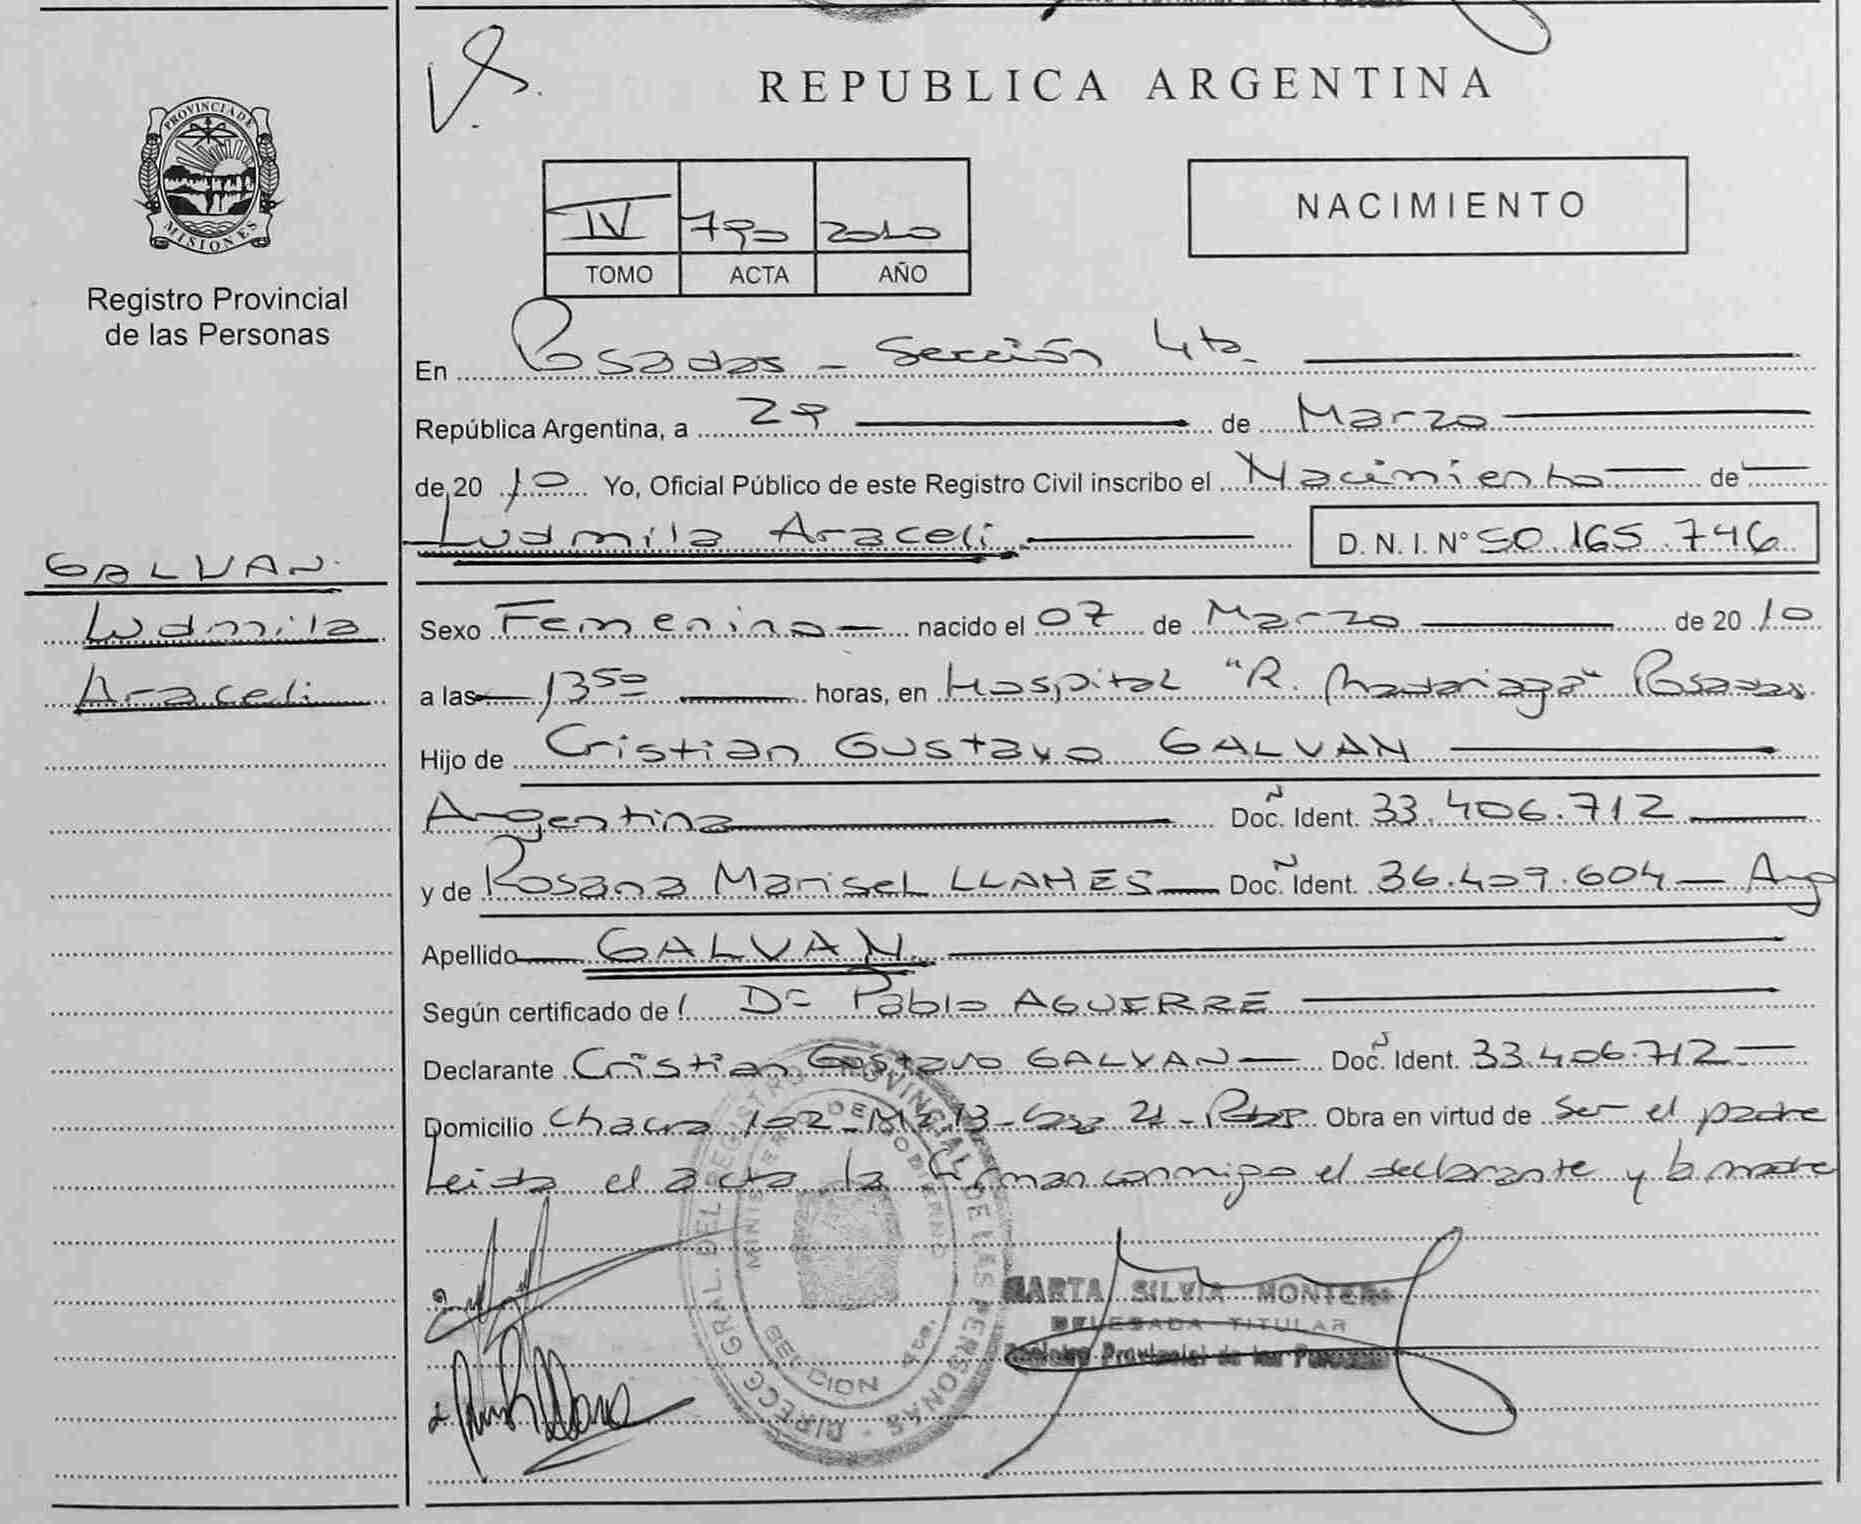 REPUBLICA ARGENTINA
PROVINCIA DE MISIONES
Registro Provincial
de las Personas
IV 790 2010
TOMO ACTA AÑO
NACIMIENTO
En Posadas - Sección 4ta.
República Argentina, a 29 de Marzo
de 20 10 Yo, Oficial Público de este Registro Civil inscribo el Nacimiento de
Ludmila Araceli D.N.I. Nº 50.165.746
GALVAN
Ludmila
Araceli
Sexo Femenino nacido el 07 de Marzo de 20 10
a las 13 50 horas, en Hospital "R. Madariaga" Posadas
Hijo de Cristian Gustavo GALVAN
Argentina Doc. Ident. 33.406.712
y de Rosana Marisel LLAMES Doc. Ident. 36.409.604 - Arg
Apellido GALVAN
Según certificado de Dr Pablo AGUERRE
Declarante Cristian Gustavo GALVAN Doc. Ident. 33.406.712
Domicilio Chacra 102 - Mz 13 - Csa 21 - Pdas Obra en virtud de ser el padre
Leida el acta la firman conmigo el declarante y la madre
DIRECC. GRAL. DEL REGISTRO PROVINCIAL DE LAS PERSONAS
MINISTERIO DE GOBIERNO
MARTA SILVIA MONTERO
DELEGADA TITULAR
Registro Provincial de las Personas